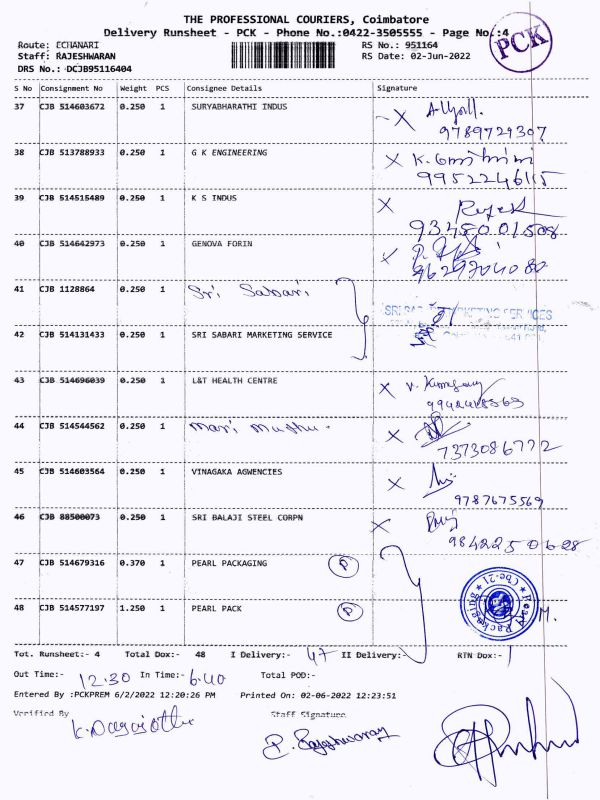 THE PROFESSIONAL COURIERS, Coimbatore
Delivery Runsheet - PCK - Phone No.:0422-3505555 - Page No.:4
PCK
Route: ECHANARI RS No.: 951164
Staff: RAJESHWARAN RS Date: 02-Jun-2022
DRS No.: DCJB95116404
S No Consignment No Weight PCS Consignee Details Signature
37 CJB 514603672 0.250 1 SURYABHARATHI INDUS X
9789729307
38 CJB 513788933 0.250 1 G K ENGINEERING X
9952246115
39 CJB 514515489 0.250 1 K S INDUS X
9348001508
40 CJB 514642973 0.250 1 GENOVA FORIN X
9629704080
41 CJB 1128864 0.250 1 Sri Sabari
42 CJB 514131433 0.250 1 SRI SABARI MARKETING SERVICE
43 CJB 514696039 0.250 1 L&T HEALTH CENTRE X
44 CJB 514544562 0.250 1 Mari Muthu. X
7373086772
45 CJB 514603564 0.250 1 VINAGAKA AGWENCIES X
9787675569
46 CJB 88500073 0.250 1 SRI BALAJI STEEL CORPN X
9842250628
47 CJB 514679316 0.370 1 PEARL PACKAGING P
48 CJB 514577197 1.250 1 PEARL PACK P
Pearl Packaging Cbe-21
M.
Tot. Runsheet:- 4 Total Dox:- 48 I Delivery:- 47 II Delivery:- RTN Dox:- 1
Out Time:- 12.30 In Time:- 6.40 Total POD:-
Entered By :PCKPREM 6/2/2022 12:20:26 PM Printed On: 02-06-2022 12:23:51
Verified By Staff Signature